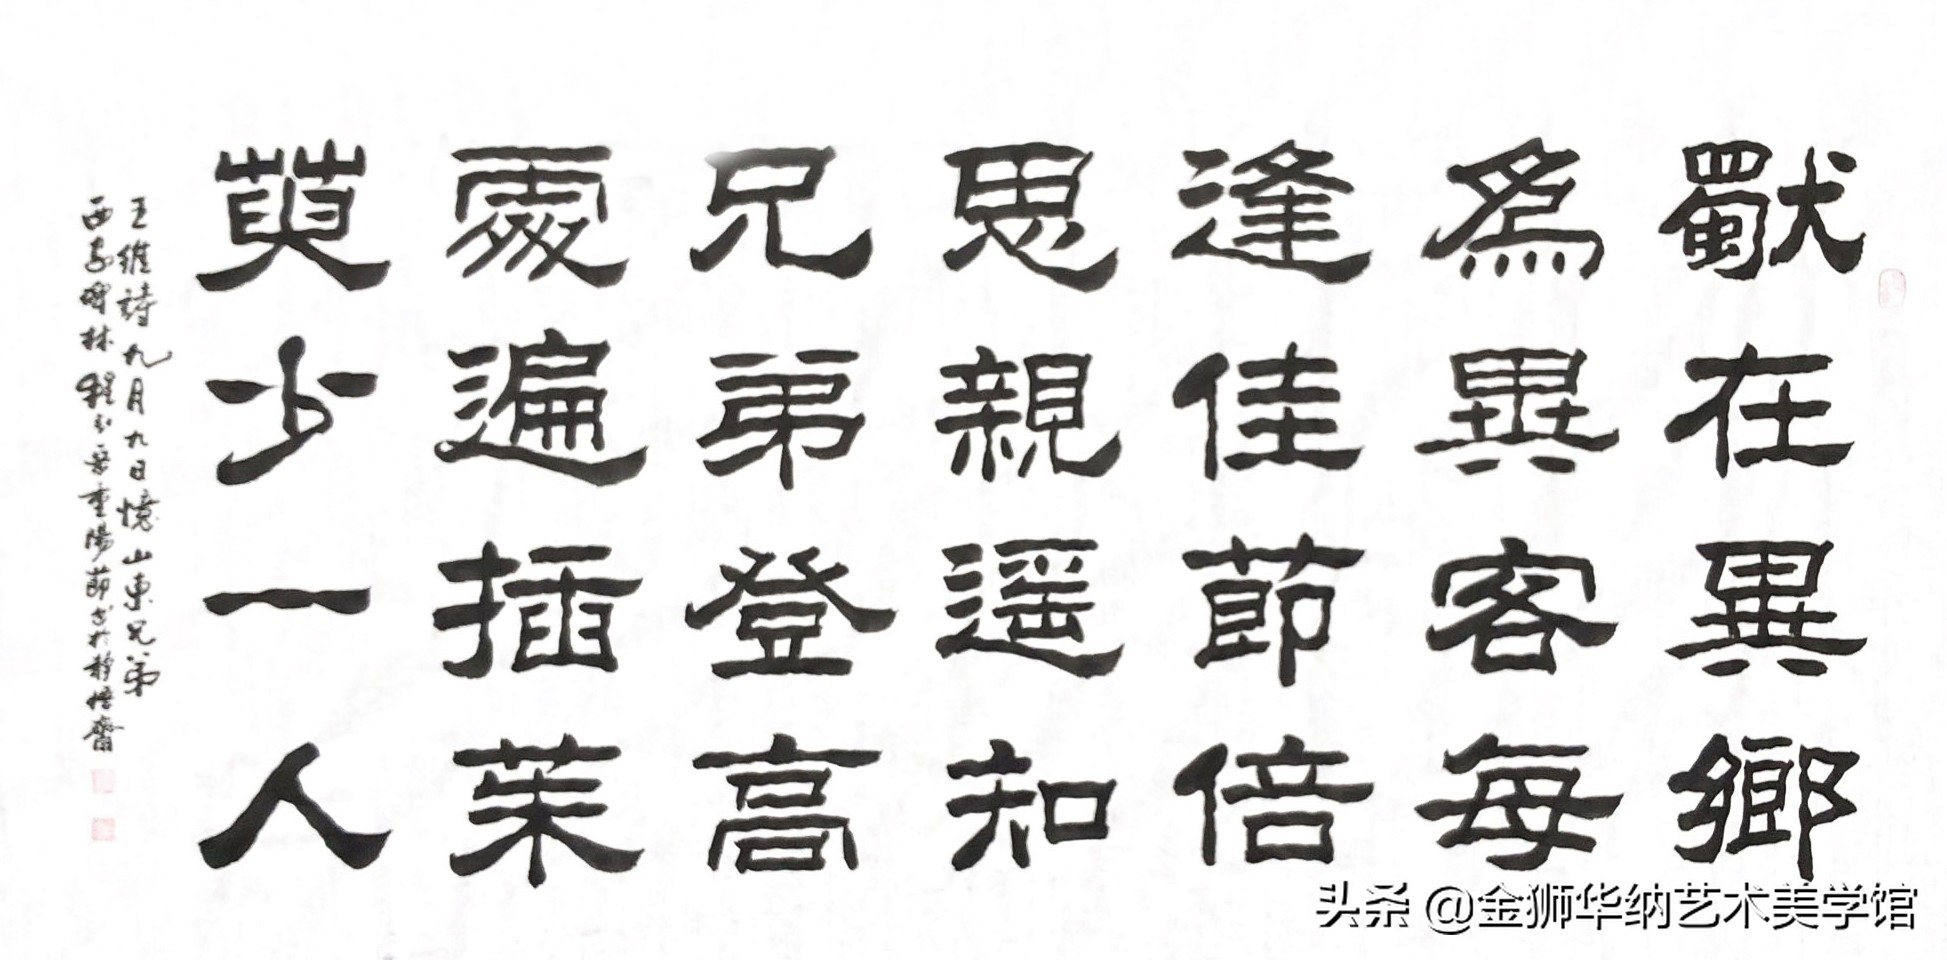 獨在異鄉
爲異客每
逢佳節倍
思親遥知
兄弟登高
處遍插茱
萸少一人
王維詩九月九日憶山東兄弟
西安碑林 重陽節書於静悟齋
头条 @金狮华纳艺术美学馆